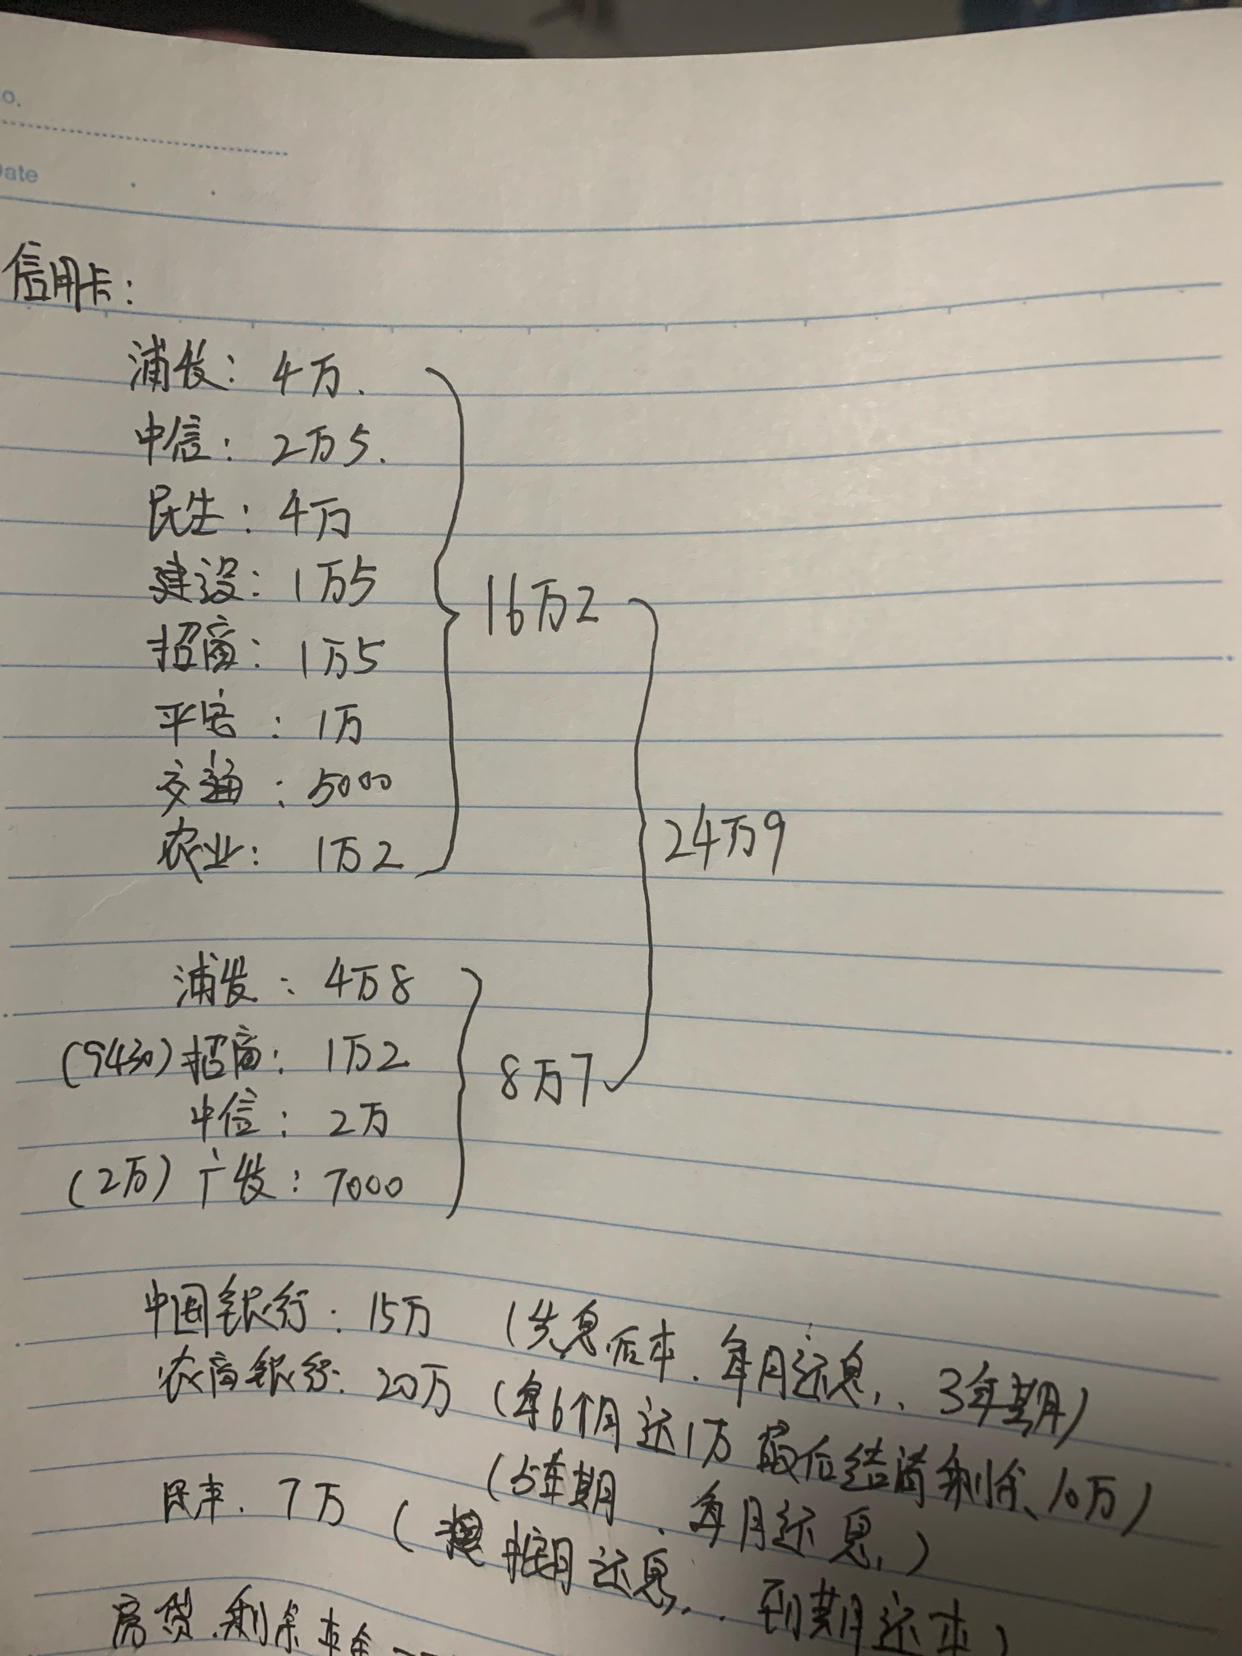 o.
ate
信用卡：
浦发：4万.
中信：2万5.
民生：4万
建设：1万5
招商：1万5
平安：1万
交通：5000
农业：1万2
16万2
浦发：4万8
(9430)招商：1万2
中信：2万
(2万)广发：7000
8万7
24万9
中国银行：15万 (先息后本.每月还息,.3年期)
农商银行：20万 (每6个月还1万 最后结清剩余10万)
(5年期、每月还息,)
民丰.7万 (按月还息,.到期还本)
房贷.剩余本金